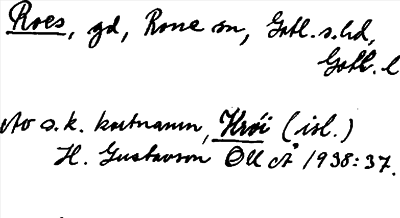 Roes, gd, Rone sn, Gotl. s. hd,
Gotl. l
Av o. s. k. kortnamn, Hrói (isl.)
H. Gustavson OUÅ 1938:37.